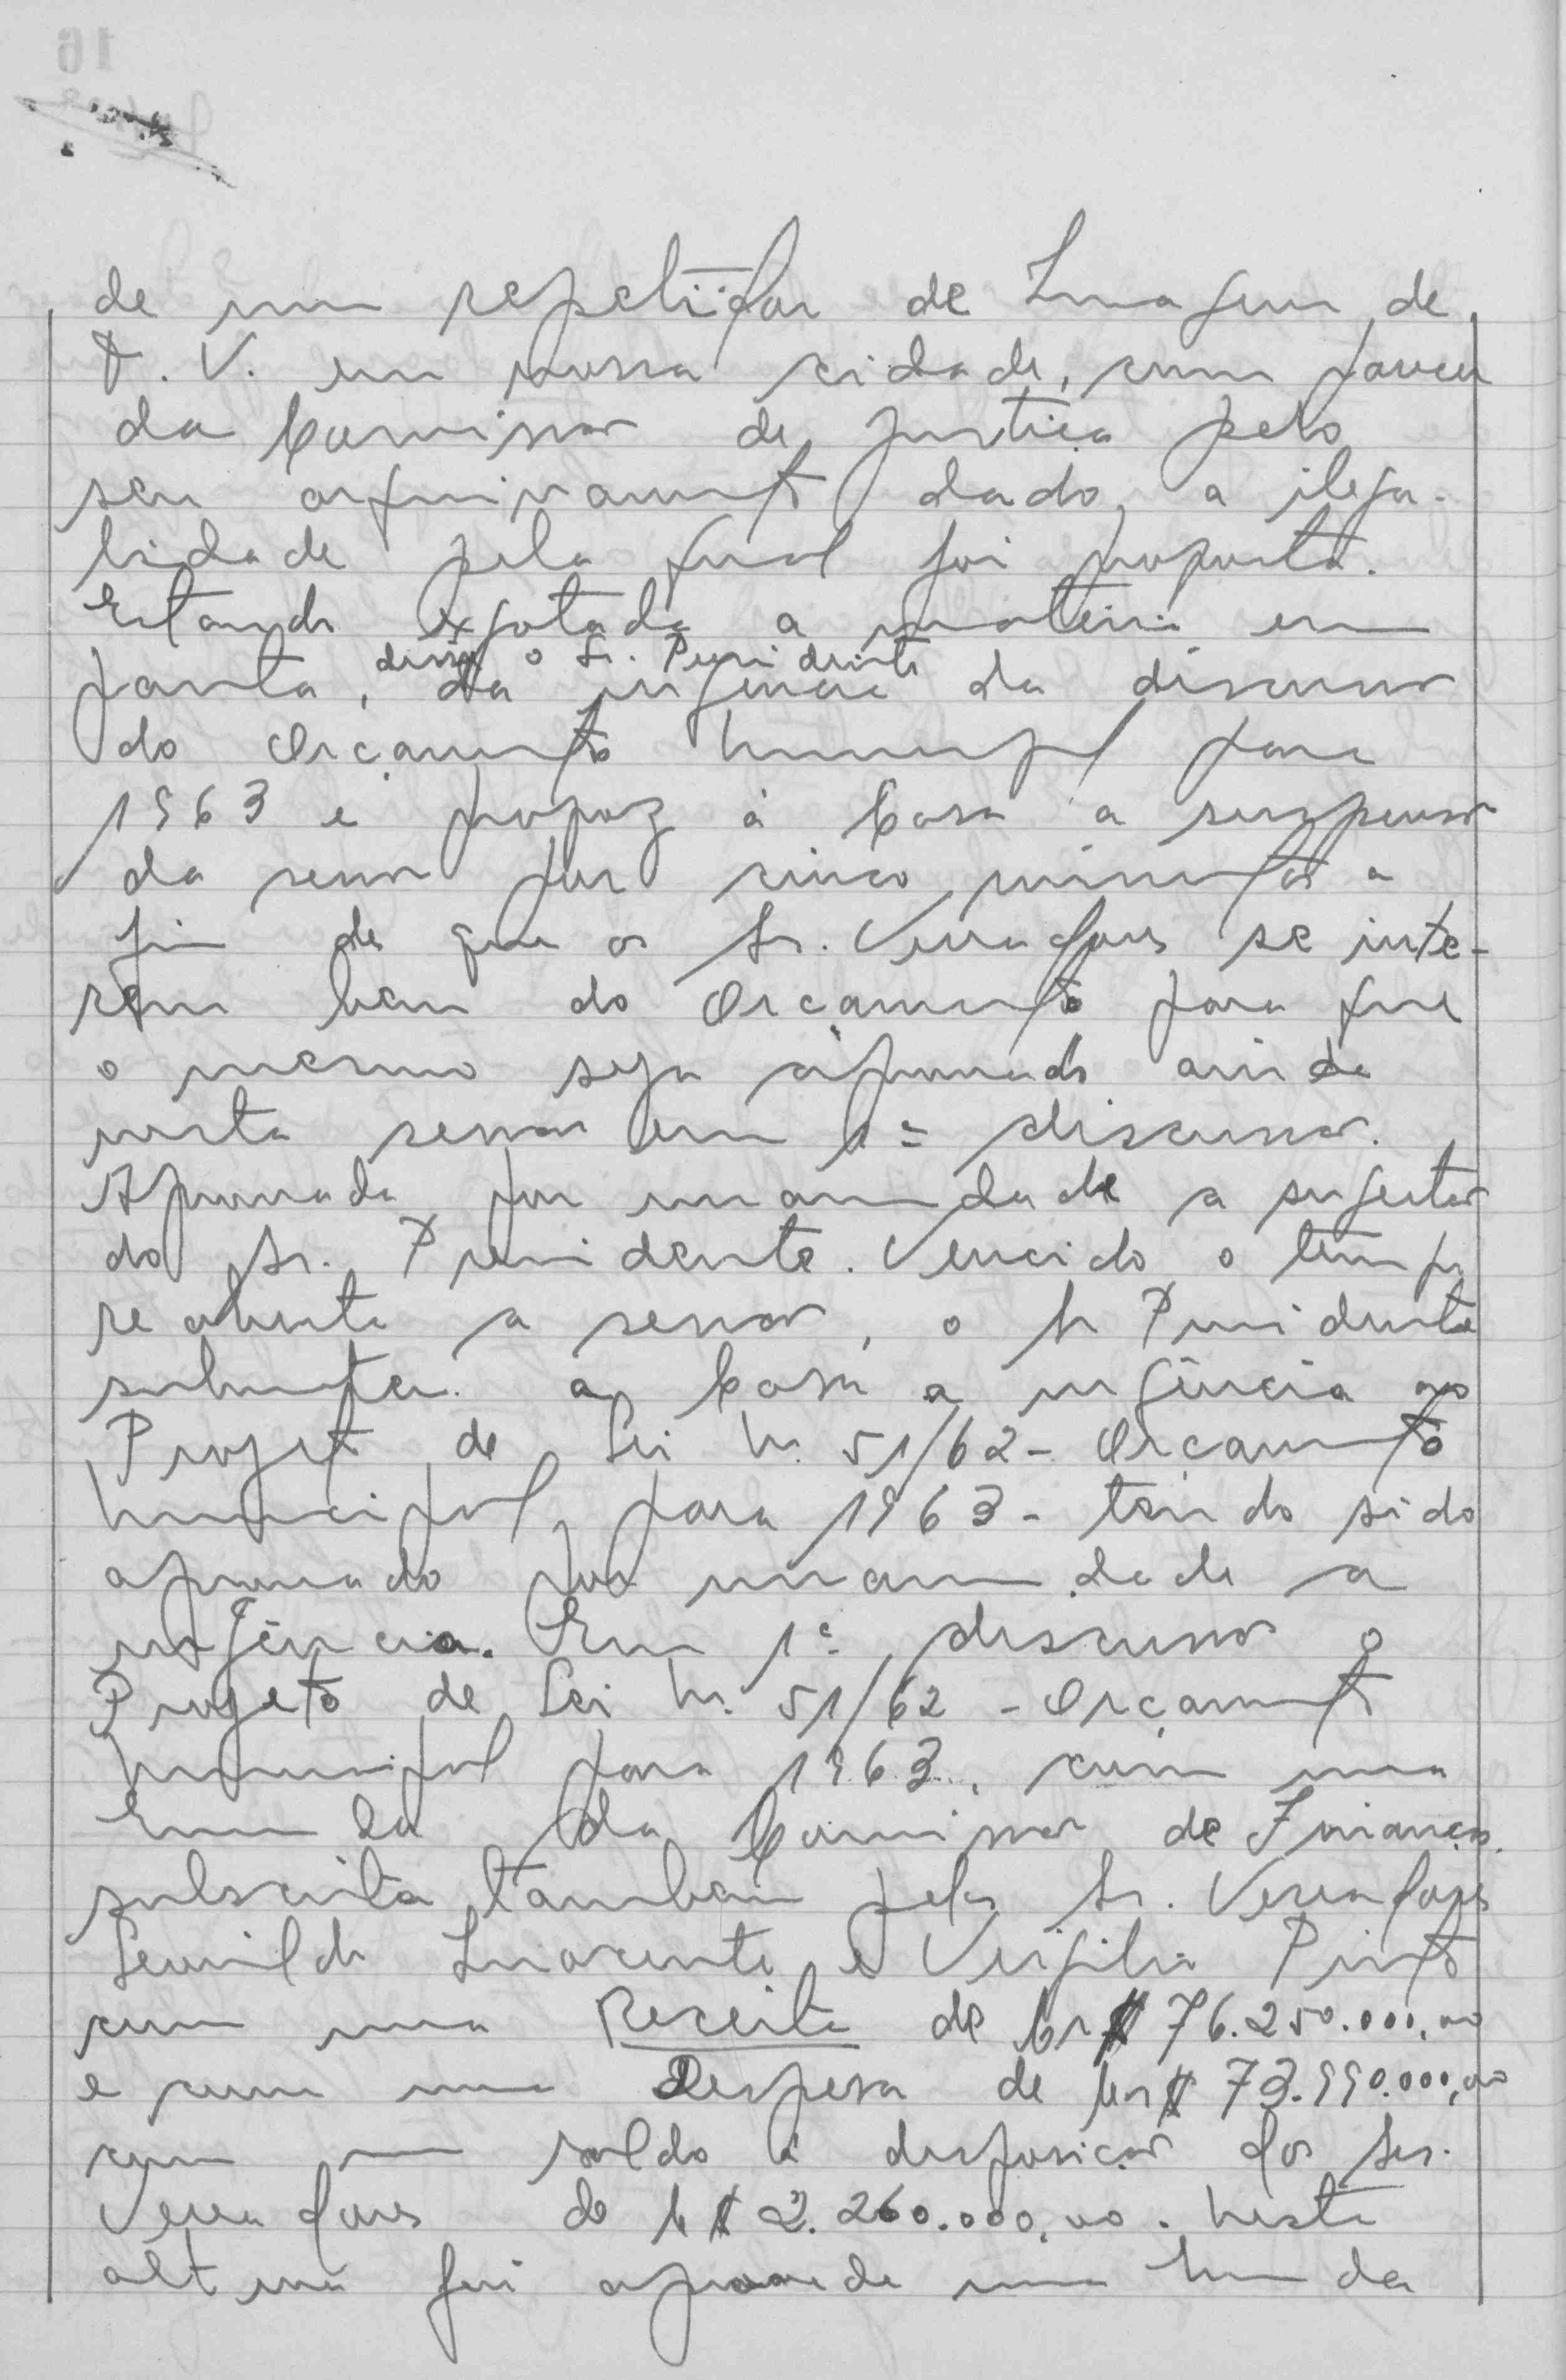 de um repetidor de Imagem de
T. V. em nossa cidade, com parecer
da Comissão de Justiça pelo
seu arquivamento dado a ilega-
lidade pela qual foi proposta.
Estando esgotada a matéria em
pauta, disse o Sr. Presidente
da urgencia da discussão
do Orçamento Municipal para
1963 e propoz à Casa a suspensão
da sessão por cinco minutos a
fim de que os Sr. Vereadores se intei-
rem bem do Orçamento para que
o mesmo seja aprovado ainda
nesta sessão em 1ª discussão.
Aprovada por unanimidade a sugestão
do Sr. Presidente. Vencido o tempo
reaberta a sessão, o Sr Presidente
submeteu a Casa a urgência ao
Projeto de Lei N. 51/62 - Orçamento
Municipal para 1963 - tendo sido
aprovado por unanimidade a
urgência. Em 1ª discussão o
Projeto de Lei N. 51/62 - Orçamento
Municipal para 1963, com uma
Emenda da Comissão de Finanças
subscrita também pelos Sr. Vereadores
Leonildo Inocente e Virgilio Pinto
com uma Receita de Cr$ 76.250.000,00
e com uma Despesa de Cr$ 73.990.000,00
com um saldo à disposição dos Srs.
Vereadores de C$ 2.260.000,00. Nesta
altura foi aprovada uma Emenda